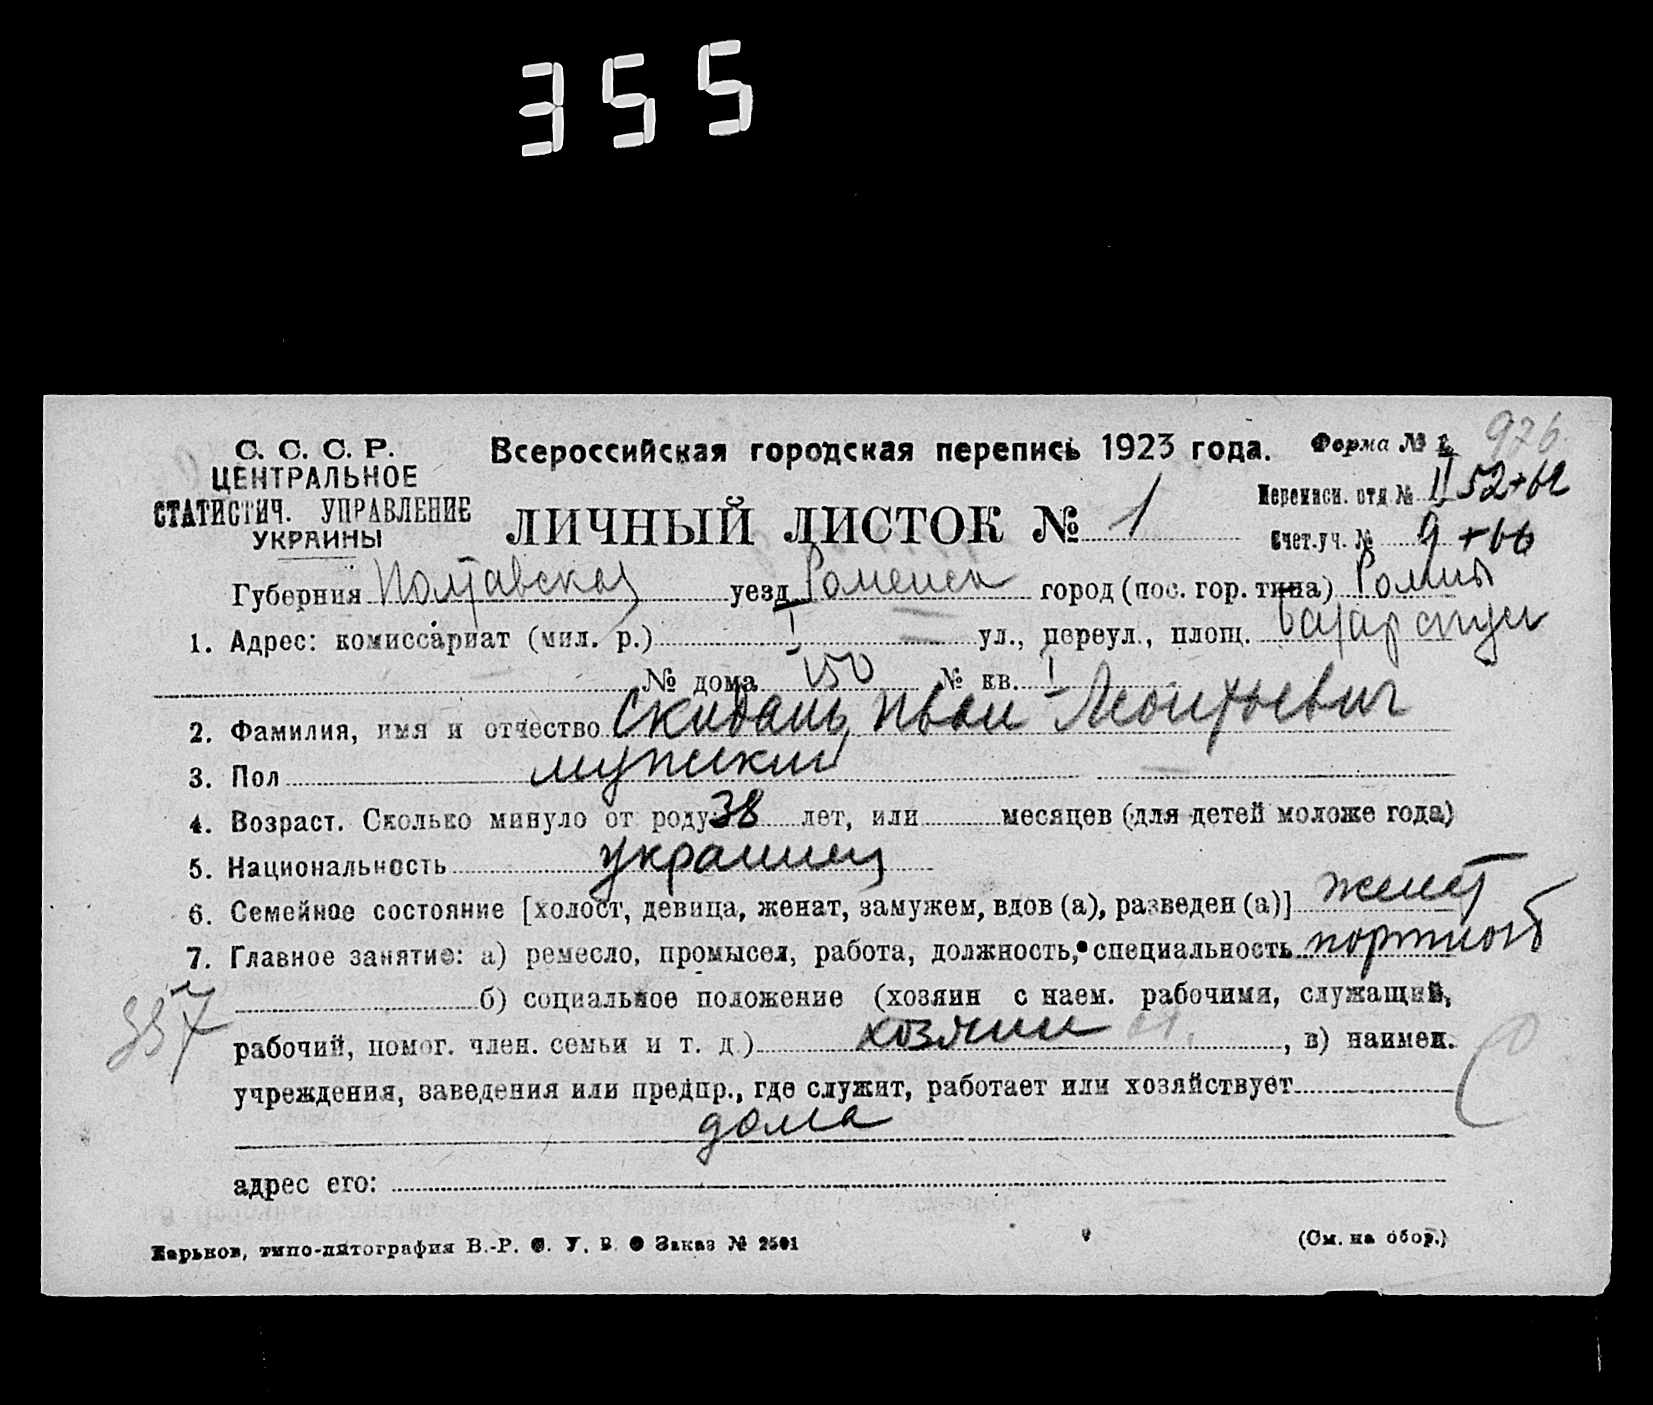 355
С. С. С. Р.
ЦЕНТРАЛЬНОЕ
СТАТИСТИЧ. УПРАВЛЕНИЕ
УКРАИНЫ
Всероссийская городская перепись 1923 года.
Форма № 1. 976
ЛИЧНЫЙ ЛИСТОК № 1
Переписн. отд № II 52+62
Счет.уч. № 9 +66
Губерния Полтавская уезд Роменск город (пос. гор. типа) Ромны
1. Адрес: комиссариат (мил. р.) I ул., переул., площ.
№ дома 150 № кв. I
2. Фамилия, имя и отчество Скидань Иван Леонтьевич
3. Пол мужской
4. Возраст. Сколько минуло от роду 38 лет, или месяцев (для детей моложе года)
5. Национальность украинец
6. Семейное состояние [холост, девица, женат, замужем, вдов (а), разведен (а)] женат
7. Главное занятие: а) ремесло, промысел, работа, должность, специальность портной
357
б) социальное положение (хозяин с наем. рабочими, служащий,
рабочий, помог. член. семьи и т. д.) хозяин , в) наимен.
учреждения, заведения или предпр., где служит, работает или хозяйствует
дома
адрес его:
Харьков, типо-литография В.-Р. Ф. У. В. Заказ № 2501
(См. на обор.)